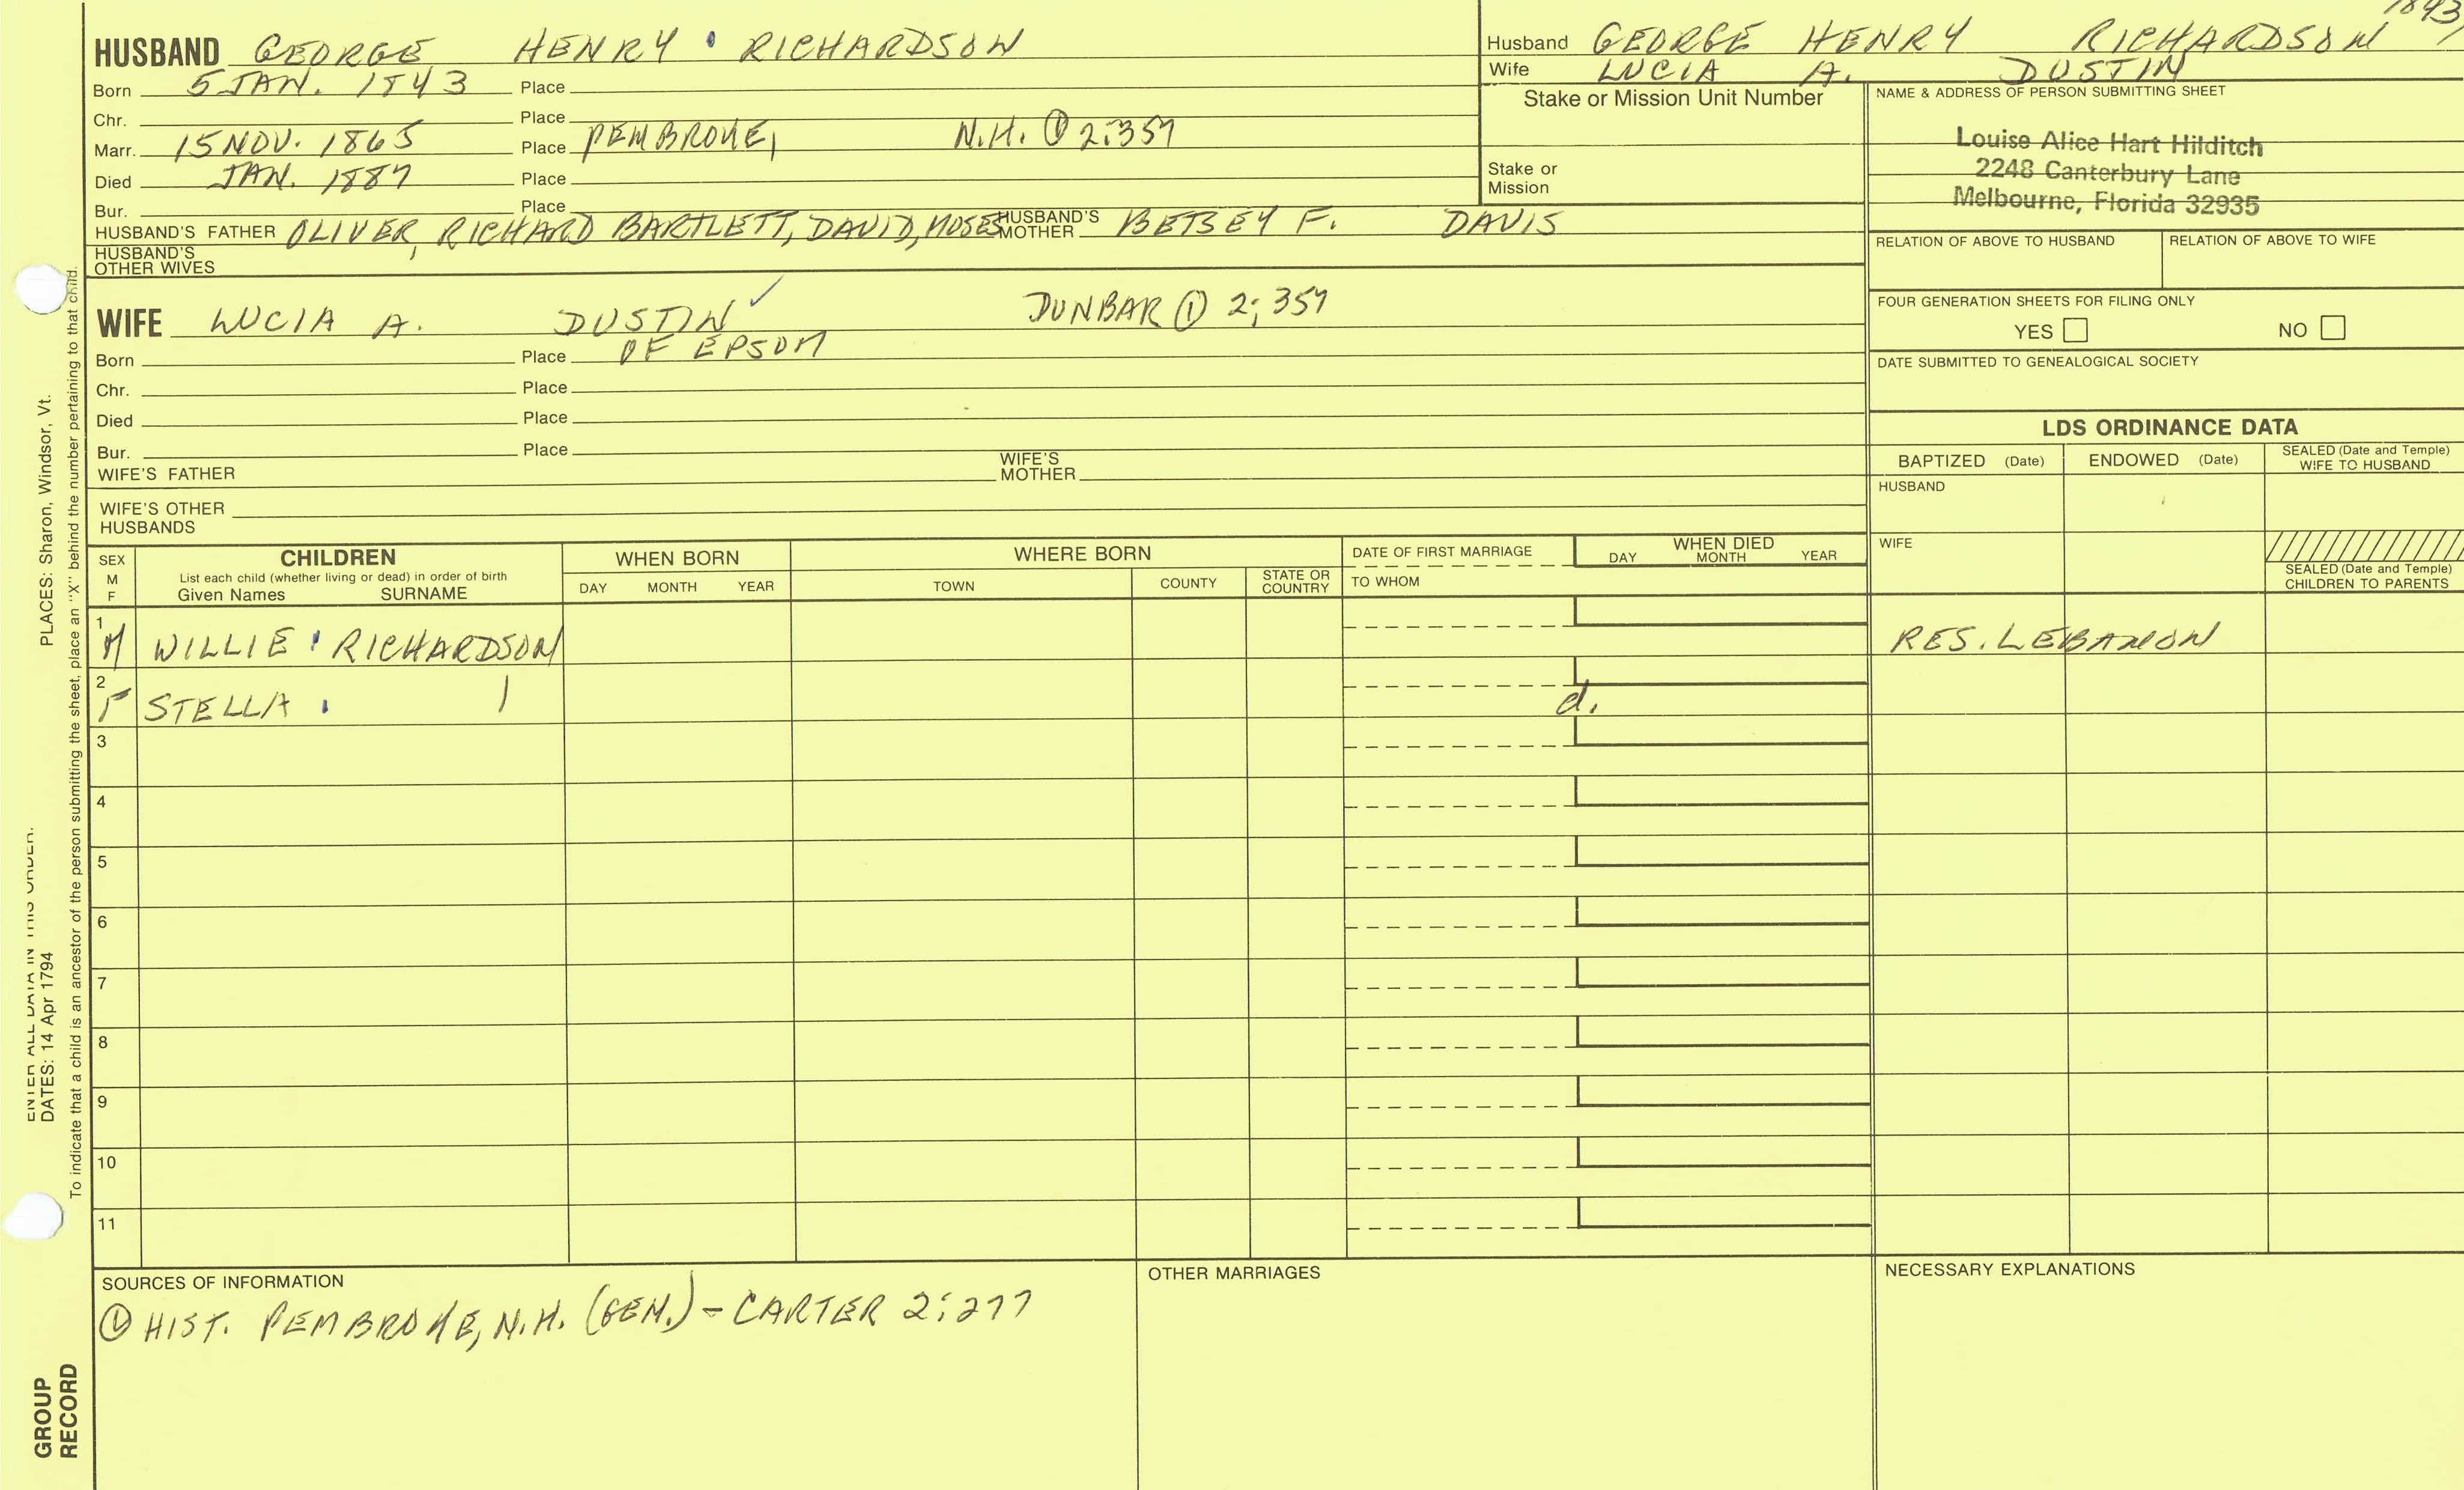 1843
HUSBAND GEORGE HENRY • RICHARDSON
Born 5 JAN. 1843 Place
Chr. Place
Marr. 15 NOV. 1865 Place PEMBROKE, N.H. ① 2:357
Died JAN. 1887 Place
Bur. Place
HUSBAND'S FATHER OLIVER, RICHARD BARTLETT, DAVID, MOSES HUSBAND'S MOTHER BETSEY F. DAVIS
HUSBAND'S OTHER WIVES
Husband GEORGE HENRY RICHARDSON
Wife LUCIA A. DUSTIN
Stake or Mission Unit Number
Stake or
Mission
NAME & ADDRESS OF PERSON SUBMITTING SHEET
Louise Alice Hart Hilditch
2248 Canterbury Lane
Melbourne, Florida 32935
RELATION OF ABOVE TO HUSBAND RELATION OF ABOVE TO WIFE
FOUR GENERATION SHEETS FOR FILING ONLY
YES NO
DATE SUBMITTED TO GENEALOGICAL SOCIETY
WIFE LUCIA A. DUSTIN ✓ DUNBAR ① 2; 357
Born Place OF EPSOM
Chr. Place
Died Place
Bur. Place
WIFE'S FATHER WIFE'S MOTHER
WIFE'S OTHER
HUSBANDS
LDS ORDINANCE DATA
BAPTIZED (Date) ENDOWED (Date) SEALED (Date and Temple) WIFE TO HUSBAND
HUSBAND
WIFE
SEALED (Date and Temple)
CHILDREN TO PARENTS
SEX
M
F
CHILDREN
List each child (whether living or dead) in order of birth
Given Names SURNAME
WHEN BORN
DAY MONTH YEAR
WHERE BORN
TOWN COUNTY STATE OR COUNTRY
DATE OF FIRST MARRIAGE
TO WHOM
WHEN DIED
DAY MONTH YEAR
1 M WILLIE • RICHARDSON RES. LEBANON
2 F STELLA • | d.
3
4
5
6
7
8
9
10
11
SOURCES OF INFORMATION
① HIST. PEMBROKE, N.H. (GEN.) - CARTER 2:277
OTHER MARRIAGES
NECESSARY EXPLANATIONS
ENTER ALL DATA IN THIS ORDER:
DATES: 14 Apr 1794 PLACES: Sharon, Windsor, Vt.
To indicate that a child is an ancestor of the person submitting the sheet, place an "X" behind the number pertaining to that child.
GROUP
RECORD